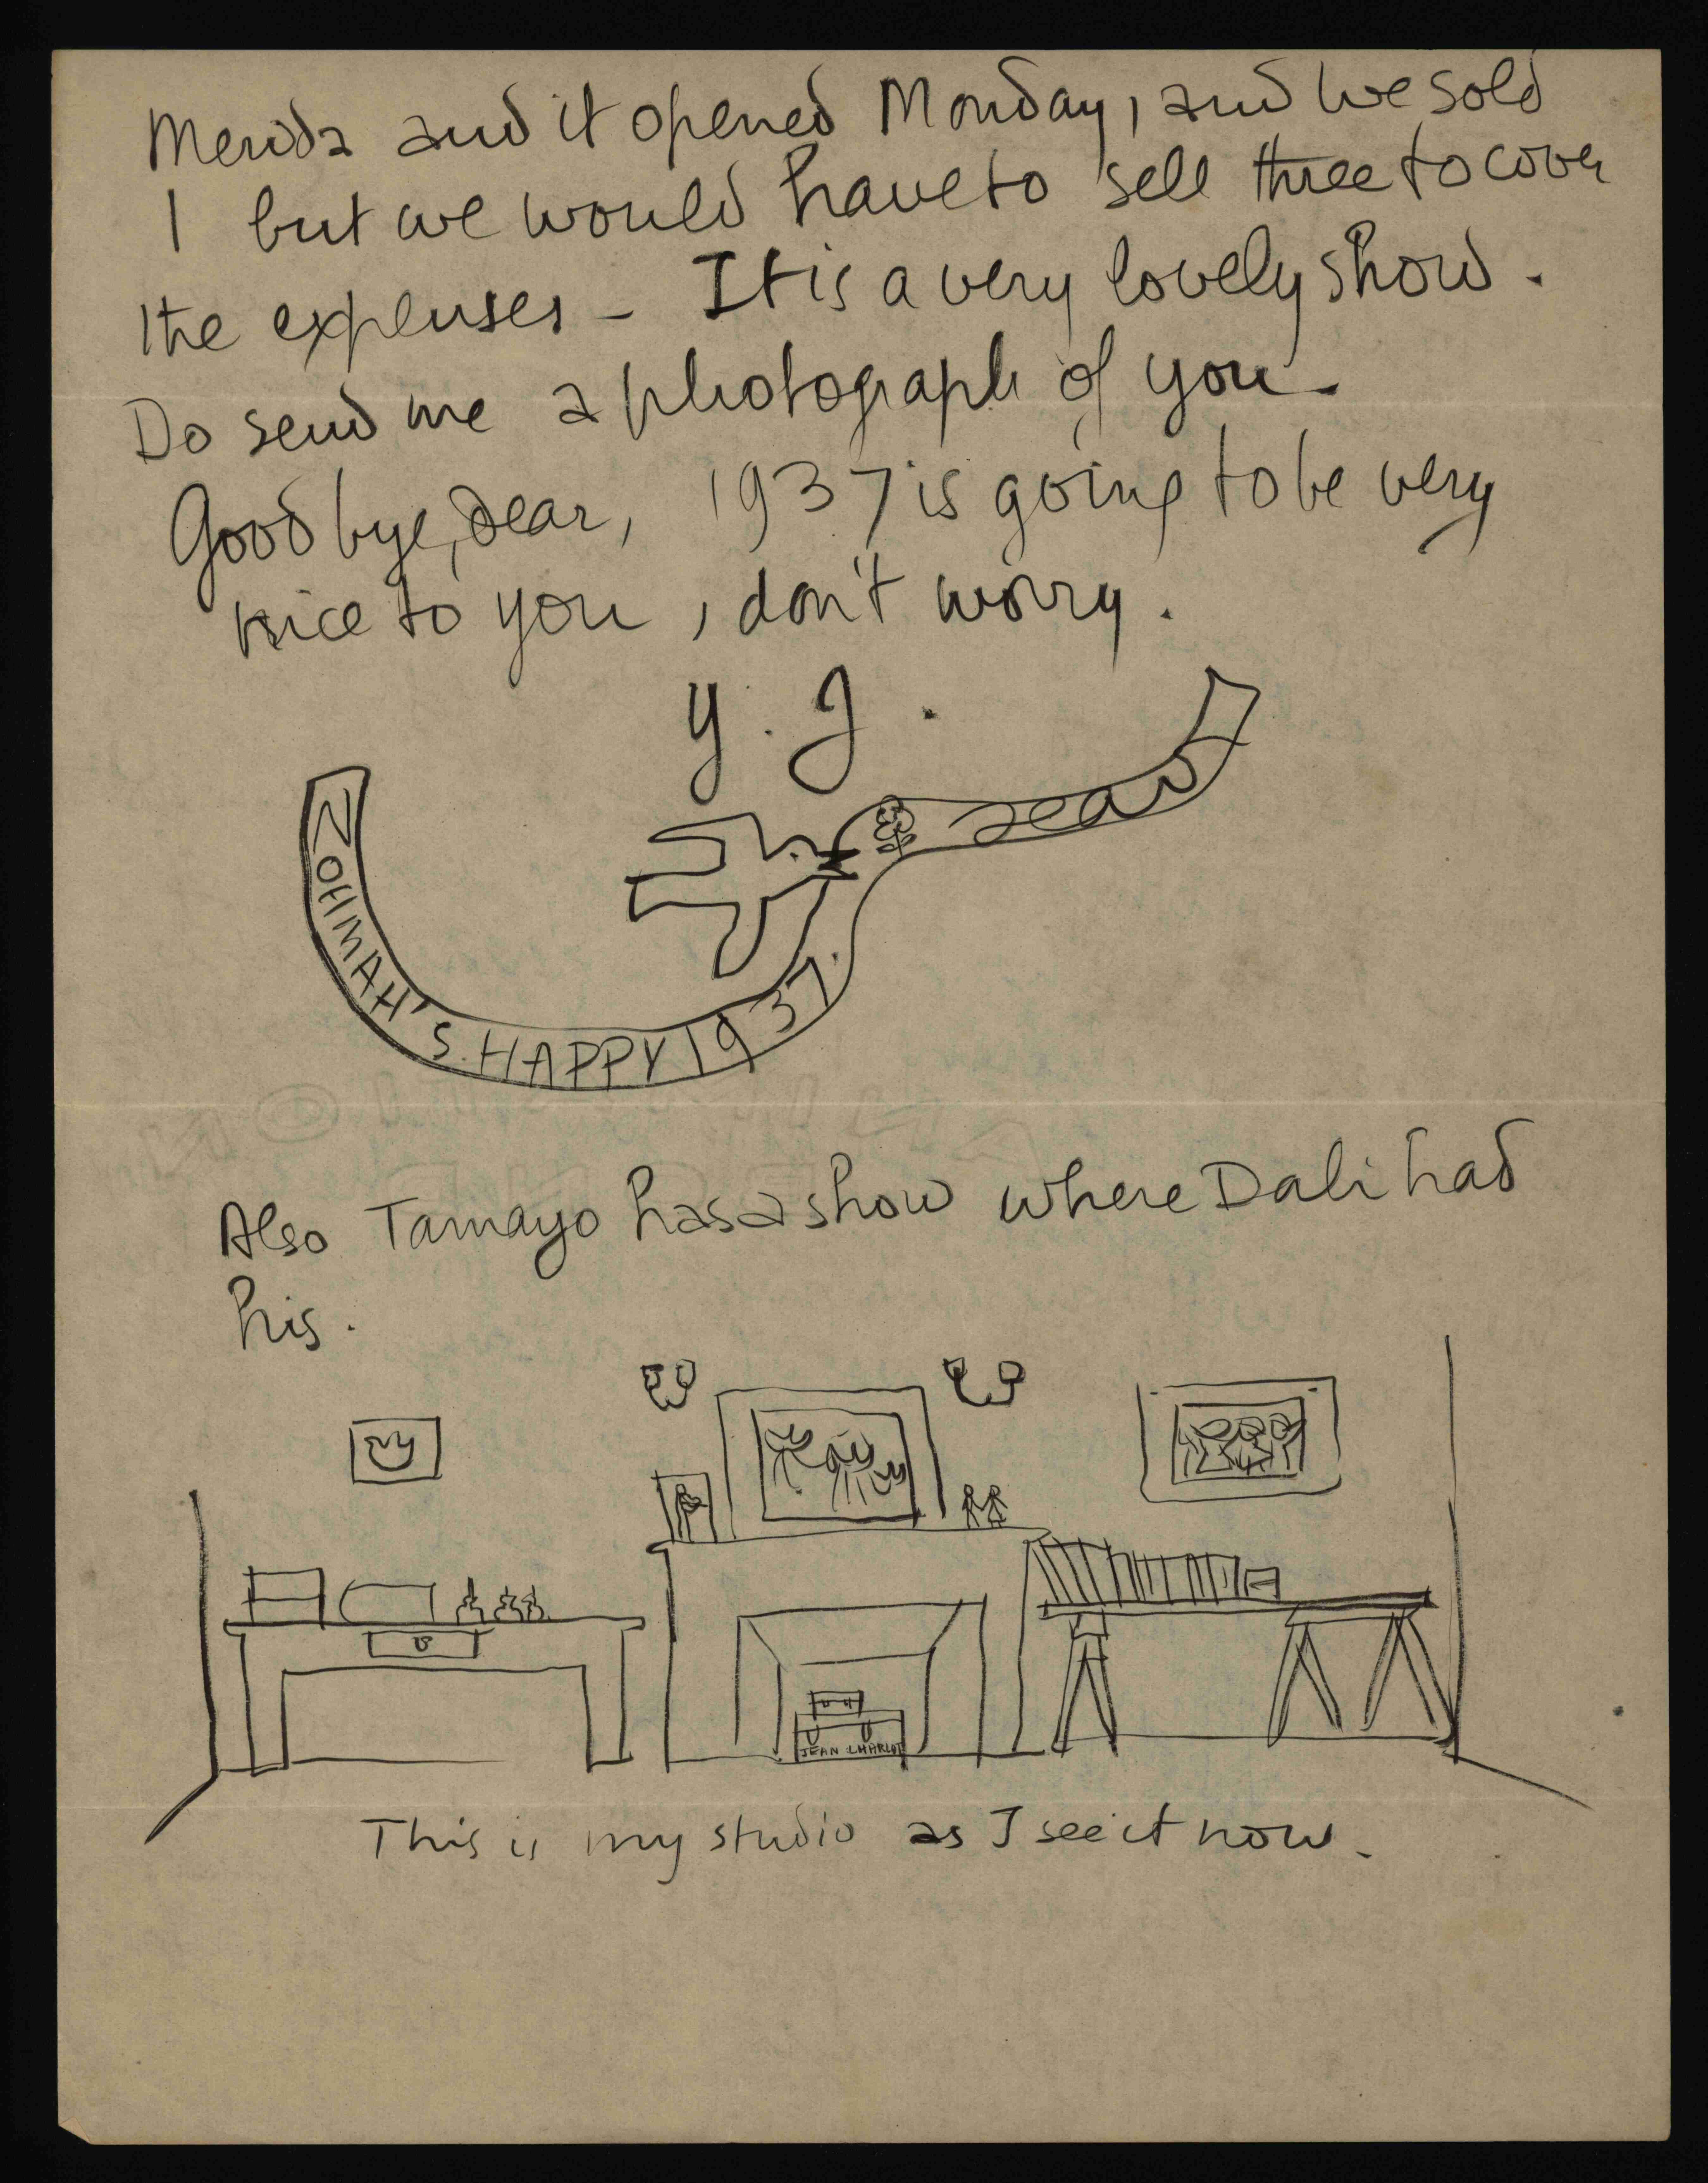 Merida and it opened Monday, and we sold
1 but we would have to sell three to cover
the expenses - It is a very lovely show.
Do send me a photograph of you -
Good bye, dear, 1937 is going to be very
nice to you, don't worry.
Y. J.
Jean
ZOHMAH'S HAPPY 1937.
Also Tamayo has a show where Dali had
his.
JEAN CHARLOT
This is my studio as I see it now.